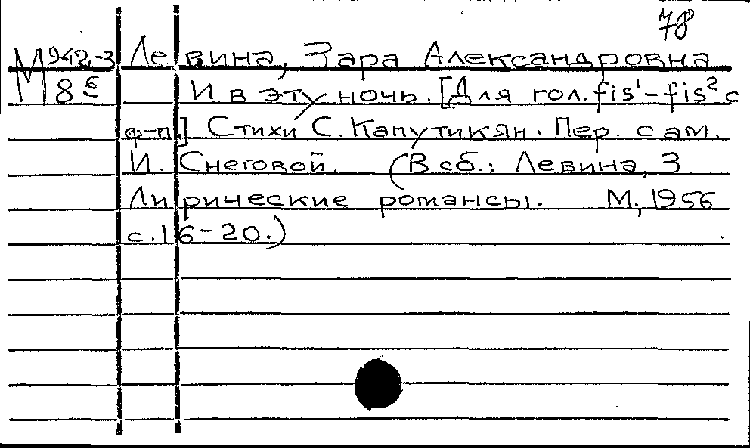 78
М942-3 Левина, Зара Александровна
8 И в эту ночь. [Для гол. fis¹-fis² с
ф-п.] Стихи С. Капутикян. Пер. с ам.
И. Снеговой. (В сб.: Левина, З
Лирические романсы. М, 1956
с.16-20.)